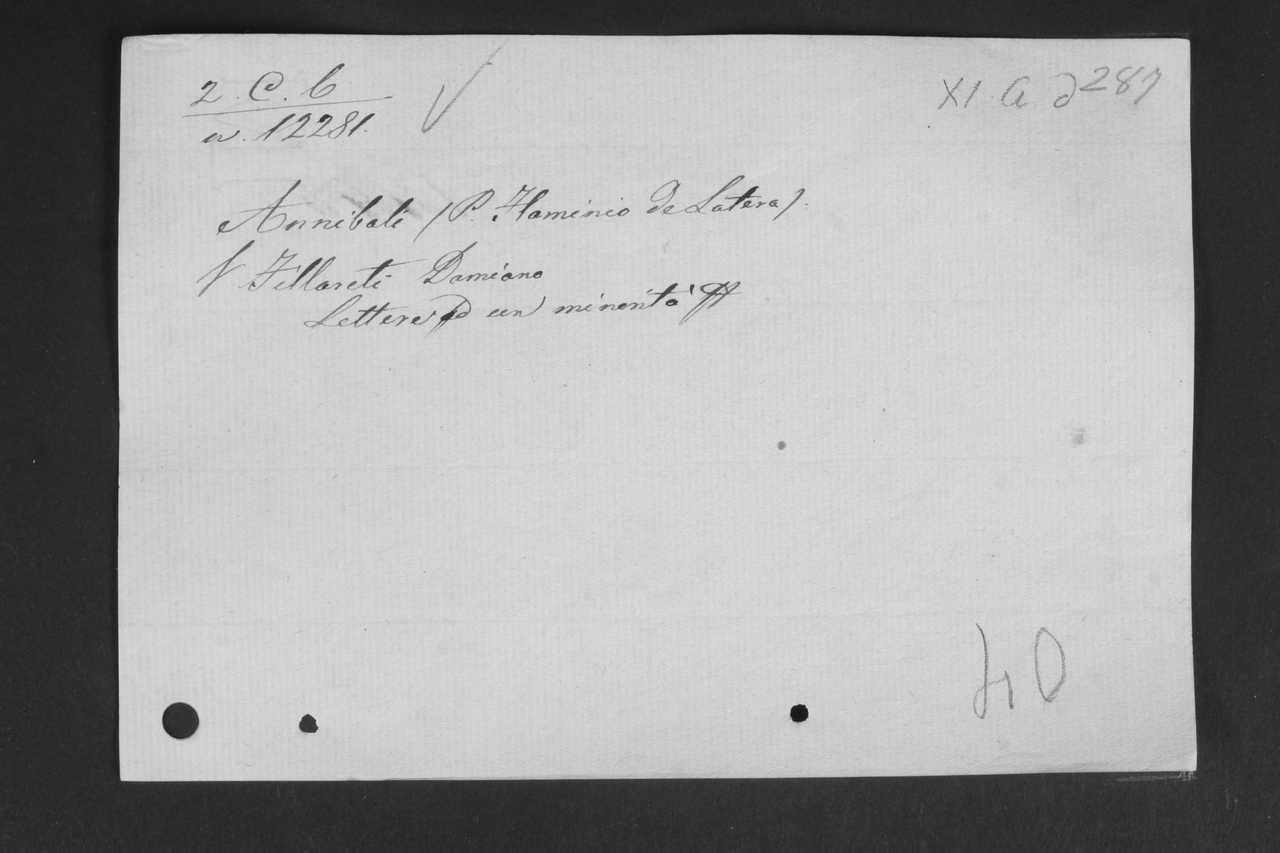 2. C. 6
n. 12281.
XI A d 287
Annibali (P. Flaminio da Latera).
V Fillareti Damiano
Lettere ad un minorita
40